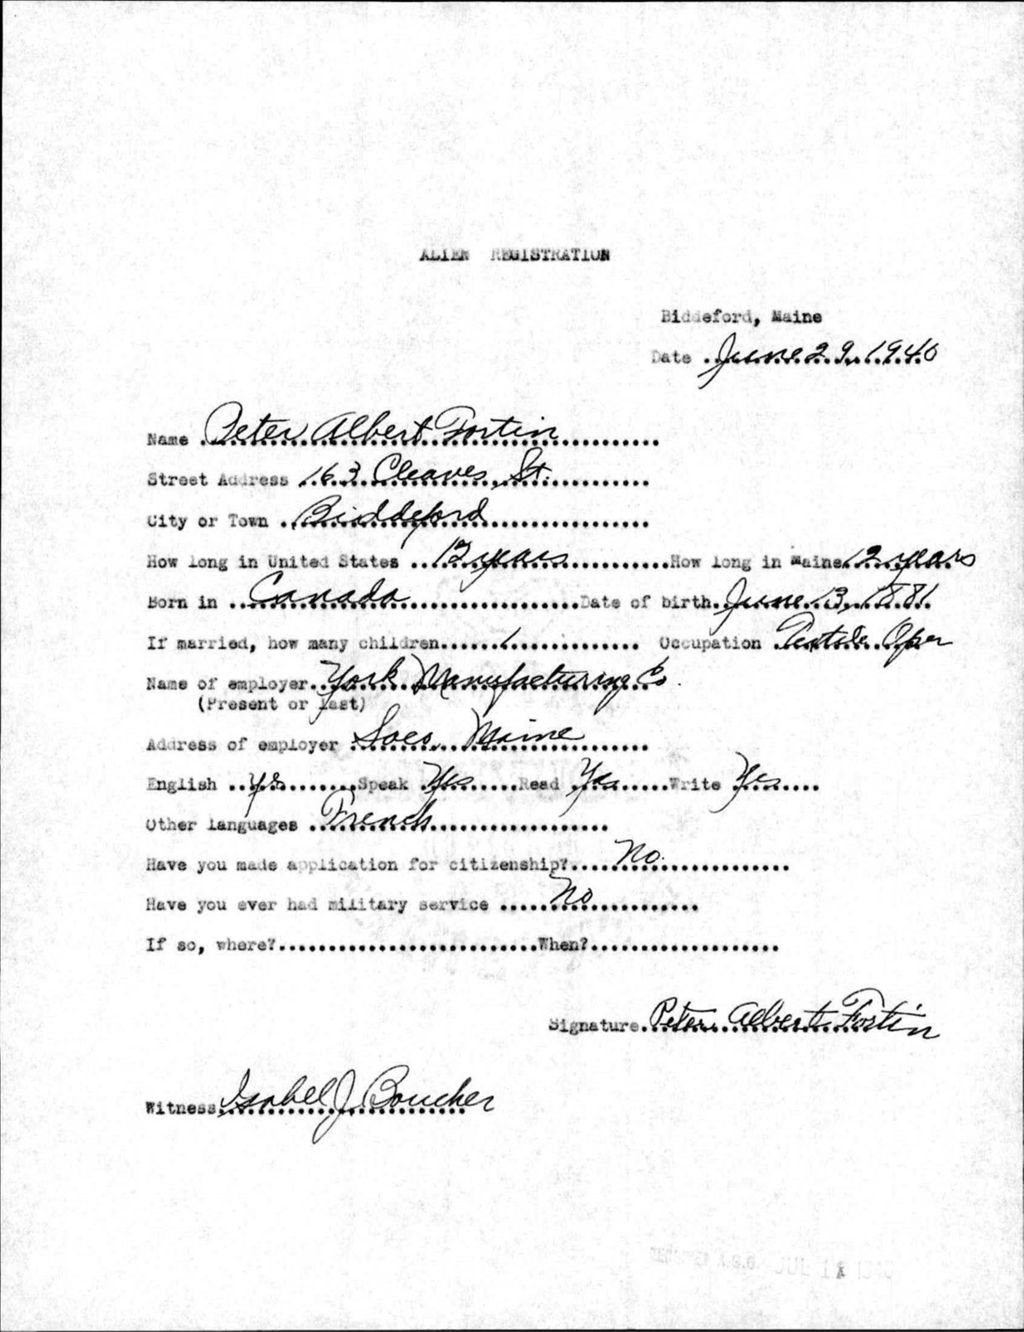 ALIEN REGISTRATION
Biddeford, Maine
Date June 29, 1940
Name Peter Albert Fortin
Street Address 163 Cleaves St.
City or Town Biddeford
How long in United States 12 years How long in Maine 12 years
Born in Canada Date of birth June 13, 1881
If married, how many children 1 Occupation Textile Oper
Name of employer York Manufacturing Co.
(Present or last)
Address of employer Saco, Maine
English Yes Speak Yes Read Yes Write Yes
Other languages French
Have you made application for citizenship? No.
Have you ever had military service No
If so, where? When?
Signature Peter Albert Fortin
Witness Isabel J. Boucher